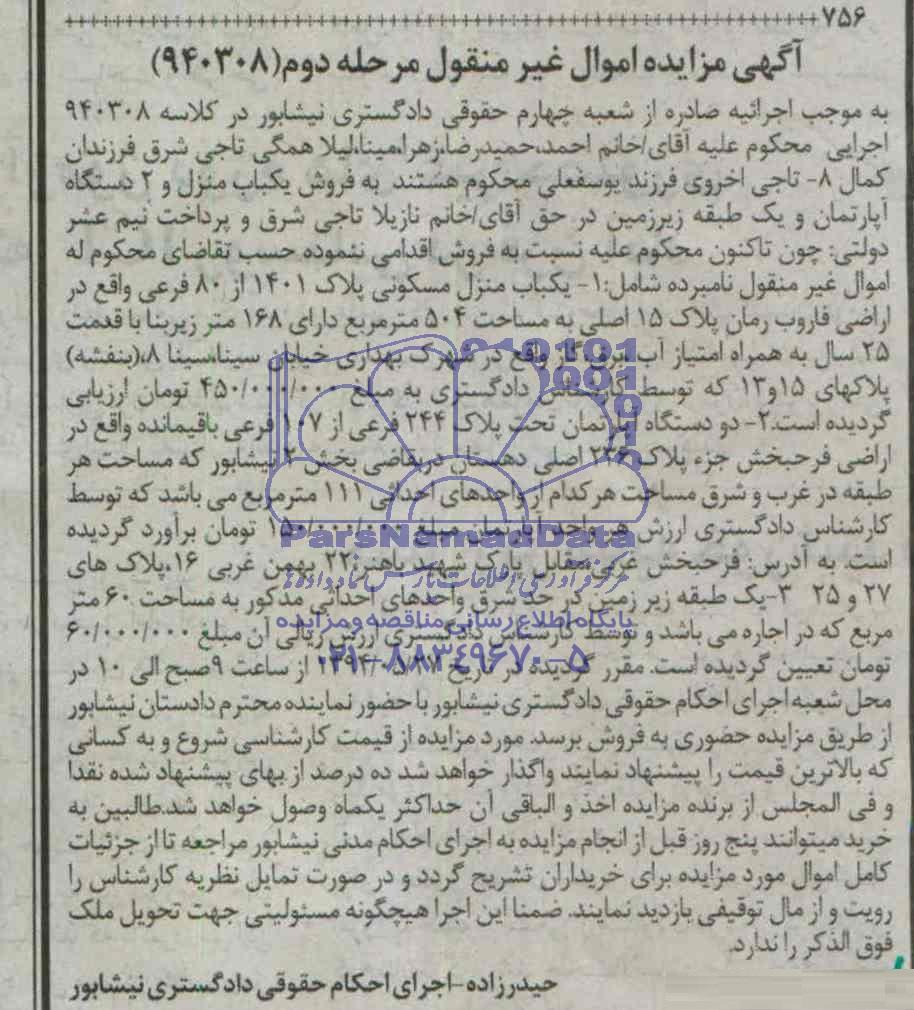 ۷۵۶
آگهی مزایده اموال غیر منقول مرحله دوم(۹۴۰۳۰۸)
به موجب اجرائیه صادره از شعبه چهارم حقوقی دادگستری نیشابور در کلاسه ۹۴۰۳۰۸
اجرایی محکوم علیه آقای/خانم احمد،حمیدرضا،زهرا،مینا،لیلا همگی تاجی شرق فرزندان
کمال ۸- تاجی اخروی فرزند یوسفعلی محکوم هستند به فروش یکباب منزل و ۲ دستگاه
آپارتمان و یک طبقه زیرزمین در حق آقای/خانم نازیلا تاجی شرق و پرداخت نیم عشر
دولتی: چون تاکنون محکوم علیه نسبت به فروش اقدامی ننموده حسب تقاضای محکوم له
اموال غیر منقول نامبرده شامل:۱- یکباب منزل مسکونی پلاک ۱۴۰۱ از ۸۰ فرعی واقع در
اراضی فاروب رمان پلاک ۱۵ اصلی به مساحت ۵۰۴ مترمربع دارای ۱۶۸ متر زیربنا با قدمت
۲۵ سال به همراه امتیاز آب،برق،گاز واقع در شهرک بهداری خیابان سینا،سینا ۸،(بنفشه)
پلاکهای ۱۵و۱۳ که توسط کارشناس دادگستری به مبلغ ۴۵۰/۰۰۰/۰۰۰ تومان ارزیابی
گردیده است.۲- دو دستگاه آپارتمان تحت پلاک ۲۴۴ فرعی از ۱۰۷ فرعی باقیمانده واقع در
اراضی فرحبخش جزء پلاک ۲۳۶ اصلی دهستان دربقاضی بخش ۲ نیشابور که مساحت هر
طبقه در غرب و شرق مساحت هر کدام از واحدهای احداثی ۱۱۱ مترمربع می باشد که توسط
کارشناس دادگستری ارزش هر واحد آپارتمان مبلغ ۱۵۰/۰۰۰/۰۰۰ تومان برآورد گردیده
است. به آدرس: فرحبخش غربی،مقابل پارک شهید باهنر،۲۲ بهمن غربی ۱۶،پلاک های
۲۷ و ۲۵ ۳-یک طبقه زیر زمین در حد شرق واحدهای احداثی مذکور به مساحت ۶۰ متر
مربع که در اجاره می باشد و توسط کارشناس دادگستری ارزش ریالی آن مبلغ ۶۰/۰۰۰/۰۰۰
تومان تعیین گردیده است. مقرر گردیده در تاریخ از ساعت ۹صبح الی ۱۰ در
محل شعبه اجرای احکام حقوقی دادگستری نیشابور با حضور نماینده محترم دادستان نیشابور
از طریق مزایده حضوری به فروش برسد. مورد مزایده از قیمت کارشناسی شروع و به کسانی
که بالاترین قیمت را پیشنهاد نمایند واگذار خواهد شد ده درصد از بهای پیشنهاد شده نقدا
و فی المجلس از برنده مزایده اخذ و الباقی آن حداکثر یکماه وصول خواهد شد.طالبین به
خرید میتوانند پنج روز قبل از انجام مزایده به اجرای احکام مدنی نیشابور مراجعه تا از جزئیات
کامل اموال مورد مزایده برای خریداران تشریح گردد و در صورت تمایل نظریه کارشناس را
رویت و از مال توقیفی بازدید نمایند. ضمنا این اجرا هیچگونه مسئولیتی جهت تحویل ملک
فوق الذکر را ندارد.
حیدرزاده-اجرای احکام حقوقی دادگستری نیشابور
ParsNamadData
مرکز فرآوری اطلاعات پارس نماد داده ها
پایگاه اطلاع رسانی مناقصه و مزایده
۰۲۱-۸۸۳۴۹۶۷۰-۵